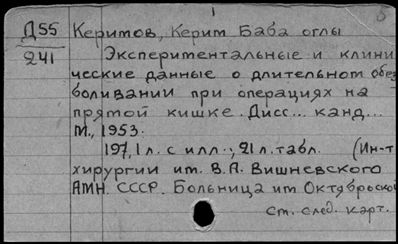 Д55 Керимов, Керим Баба оглы
241 Экспериментальные и клини
ческие данные о длительном обез
боливании при операциях на
прямой кишке. Дисс... канд...
М., 1953.
197, 1 л. с илл.; 21 л. табл. (Ин-т
хирургии им. В.А. Вишневского
АМН. СССР. Больница им Октябрьской
См. след. карт.